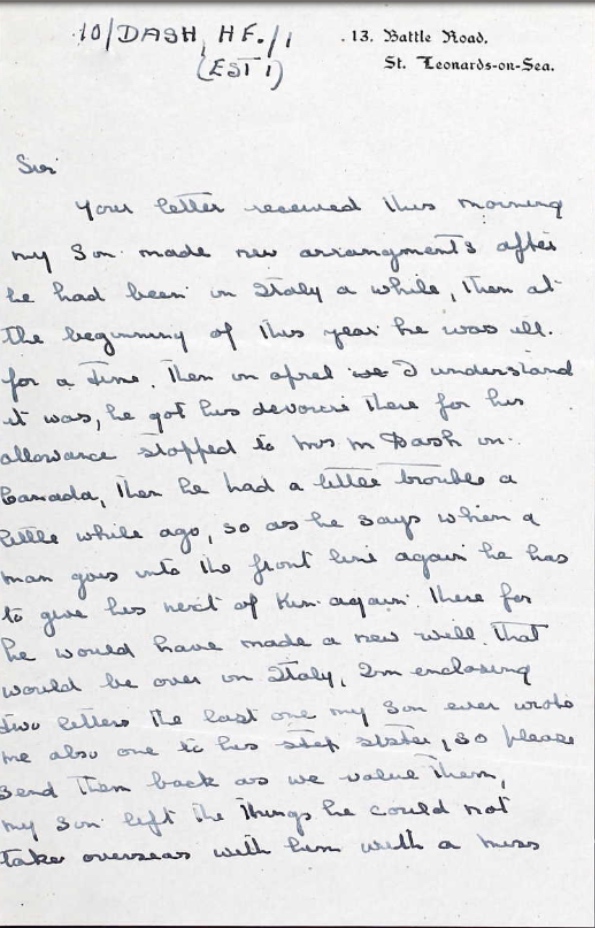 10/DASH, HF./1
(EST 1)
13. Battle Road.
St. Leonards-on-Sea.
Sir
Your letter received this morning
my Son made new arrangments after
he had been in Italy a while, then at
the beginning of this year he was ill.
for a time. Then in aprel I understand
it was, he got his devorce there for his
allowance stopped to Mrs M Dash in
Canada, then he had a little trouble a
little while ago, so as he says when a
man goes into the front line again he has
to give his next of Kin again. there for
he would have made a new will. that
would be over in Italy, Im enclosing
two letters the last one my Son ever wrote
me also one to his step sister, so please
send them back as we value them,
my Son left the things he could not
take overseas with him with a miss